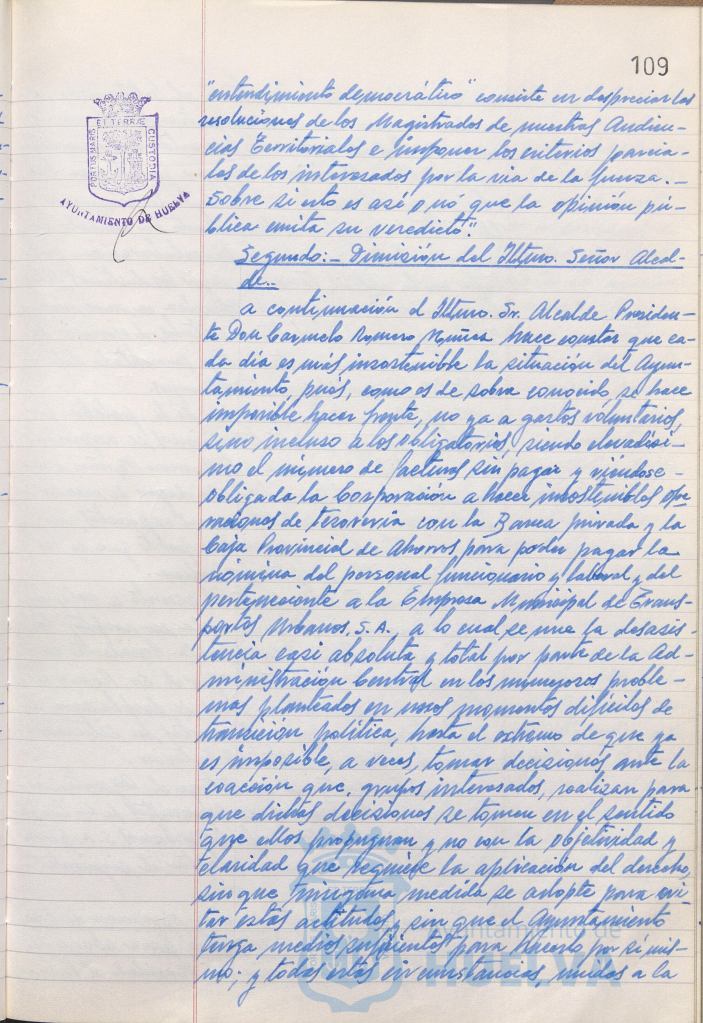 109
PORTUS MARIS ET TERRÆ CUSTODIA
AYUNTAMIENTO DE HUELVA
"entendimiento democrático" consiste en despreciar las
resoluciones de los Magistrados de nuestras Audien-
cias Territoriales e imponer los criterios parcia-
les de los interesados por la vía de la fuerza.-
Sobre si esto es así o nó que la opinión pú-
blica emita su veredicto".
Segundo:- Dimisión del Iltmo. Señor Alcal-
de.-
A continuación el Iltmo. Sr. Alcalde Presiden-
te Don Carmelo Romero Núñez hace constar que ca-
da día es más insostenible la situación del Ayun-
tamiento, pués, como es de sobra conocido, se hace
imposible hacer frente, no ya a gastos voluntarios,
sino incluso a los obligatorios, siendo elevadísi-
mo el número de facturas sin pagar y viéndose
obligada la Corporación a hacer insostenibles ope-
raciones de tesorería con la Banca privada y la
Caja Provincial de Ahorros para poder pagar la
nómina del personal funcionario y laboral y del
perteneciente a la Empresa Municipal de Trans-
portes Urbanos, S.A., a lo cual se une la desasis-
tencia casi absoluta y total por parte de la Ad-
ministración Central en los numerosos proble-
mas planteados en unos momentos difíciles de
transición política, hasta el extremo de que ya
es imposible, a veces, tomar decisiones ante la
coacción que, grupos interesados, realizan para
que dichas decisiones se tomen en el sentido
que ellos propugnan y no con la objetividad y
claridad que requiere la aplicación del derecho,
sin que ninguna medida se adopte para evi-
tar estas actitudes y sin que el Ayuntamiento
tenga medios suficientes para hacerlo por sí mis-
mo; y todas estas circunstancias, unidas a la
Ayuntamiento de
HUELVA